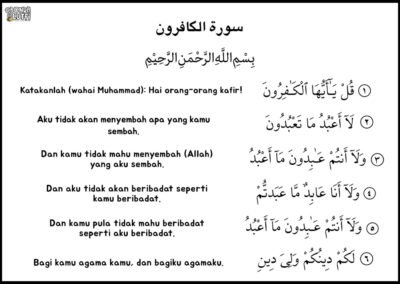 سورة الكافرون
بِسْمِ اللَّهِ الرَّحْمَنِ الرَّحِيْمِ
Katakanlah (wahai Muhammad): Hai orang-orang kafir!
قُلْ يَـٰٓأَيُّهَا ٱلْكَـٰفِرُونَ ١
Aku tidak akan menyembah apa yang kamu
sembah.
لَآ أَعْبُدُ مَا تَعْبُدُونَ ٢
Dan kamu tidak mahu menyembah (Allah)
yang aku sembah.
وَلَآ أَنتُمْ عَـٰبِدُونَ مَآ أَعْبُدُ ٣
Dan aku tidak akan beribadat seperti
kamu beribadat.
وَلَآ أَنَا۠ عَابِدٌ مَّا عَبَدتُّمْ ٤
Dan kamu pula tidak mahu beribadat
seperti aku beribadat.
وَلَآ أَنتُمْ عَـٰبِدُونَ مَآ أَعْبُدُ ٥
Bagi kamu agama kamu, dan bagiku agamaku.
لَكُمْ دِينُكُمْ وَلِىَ دِينِ ٦